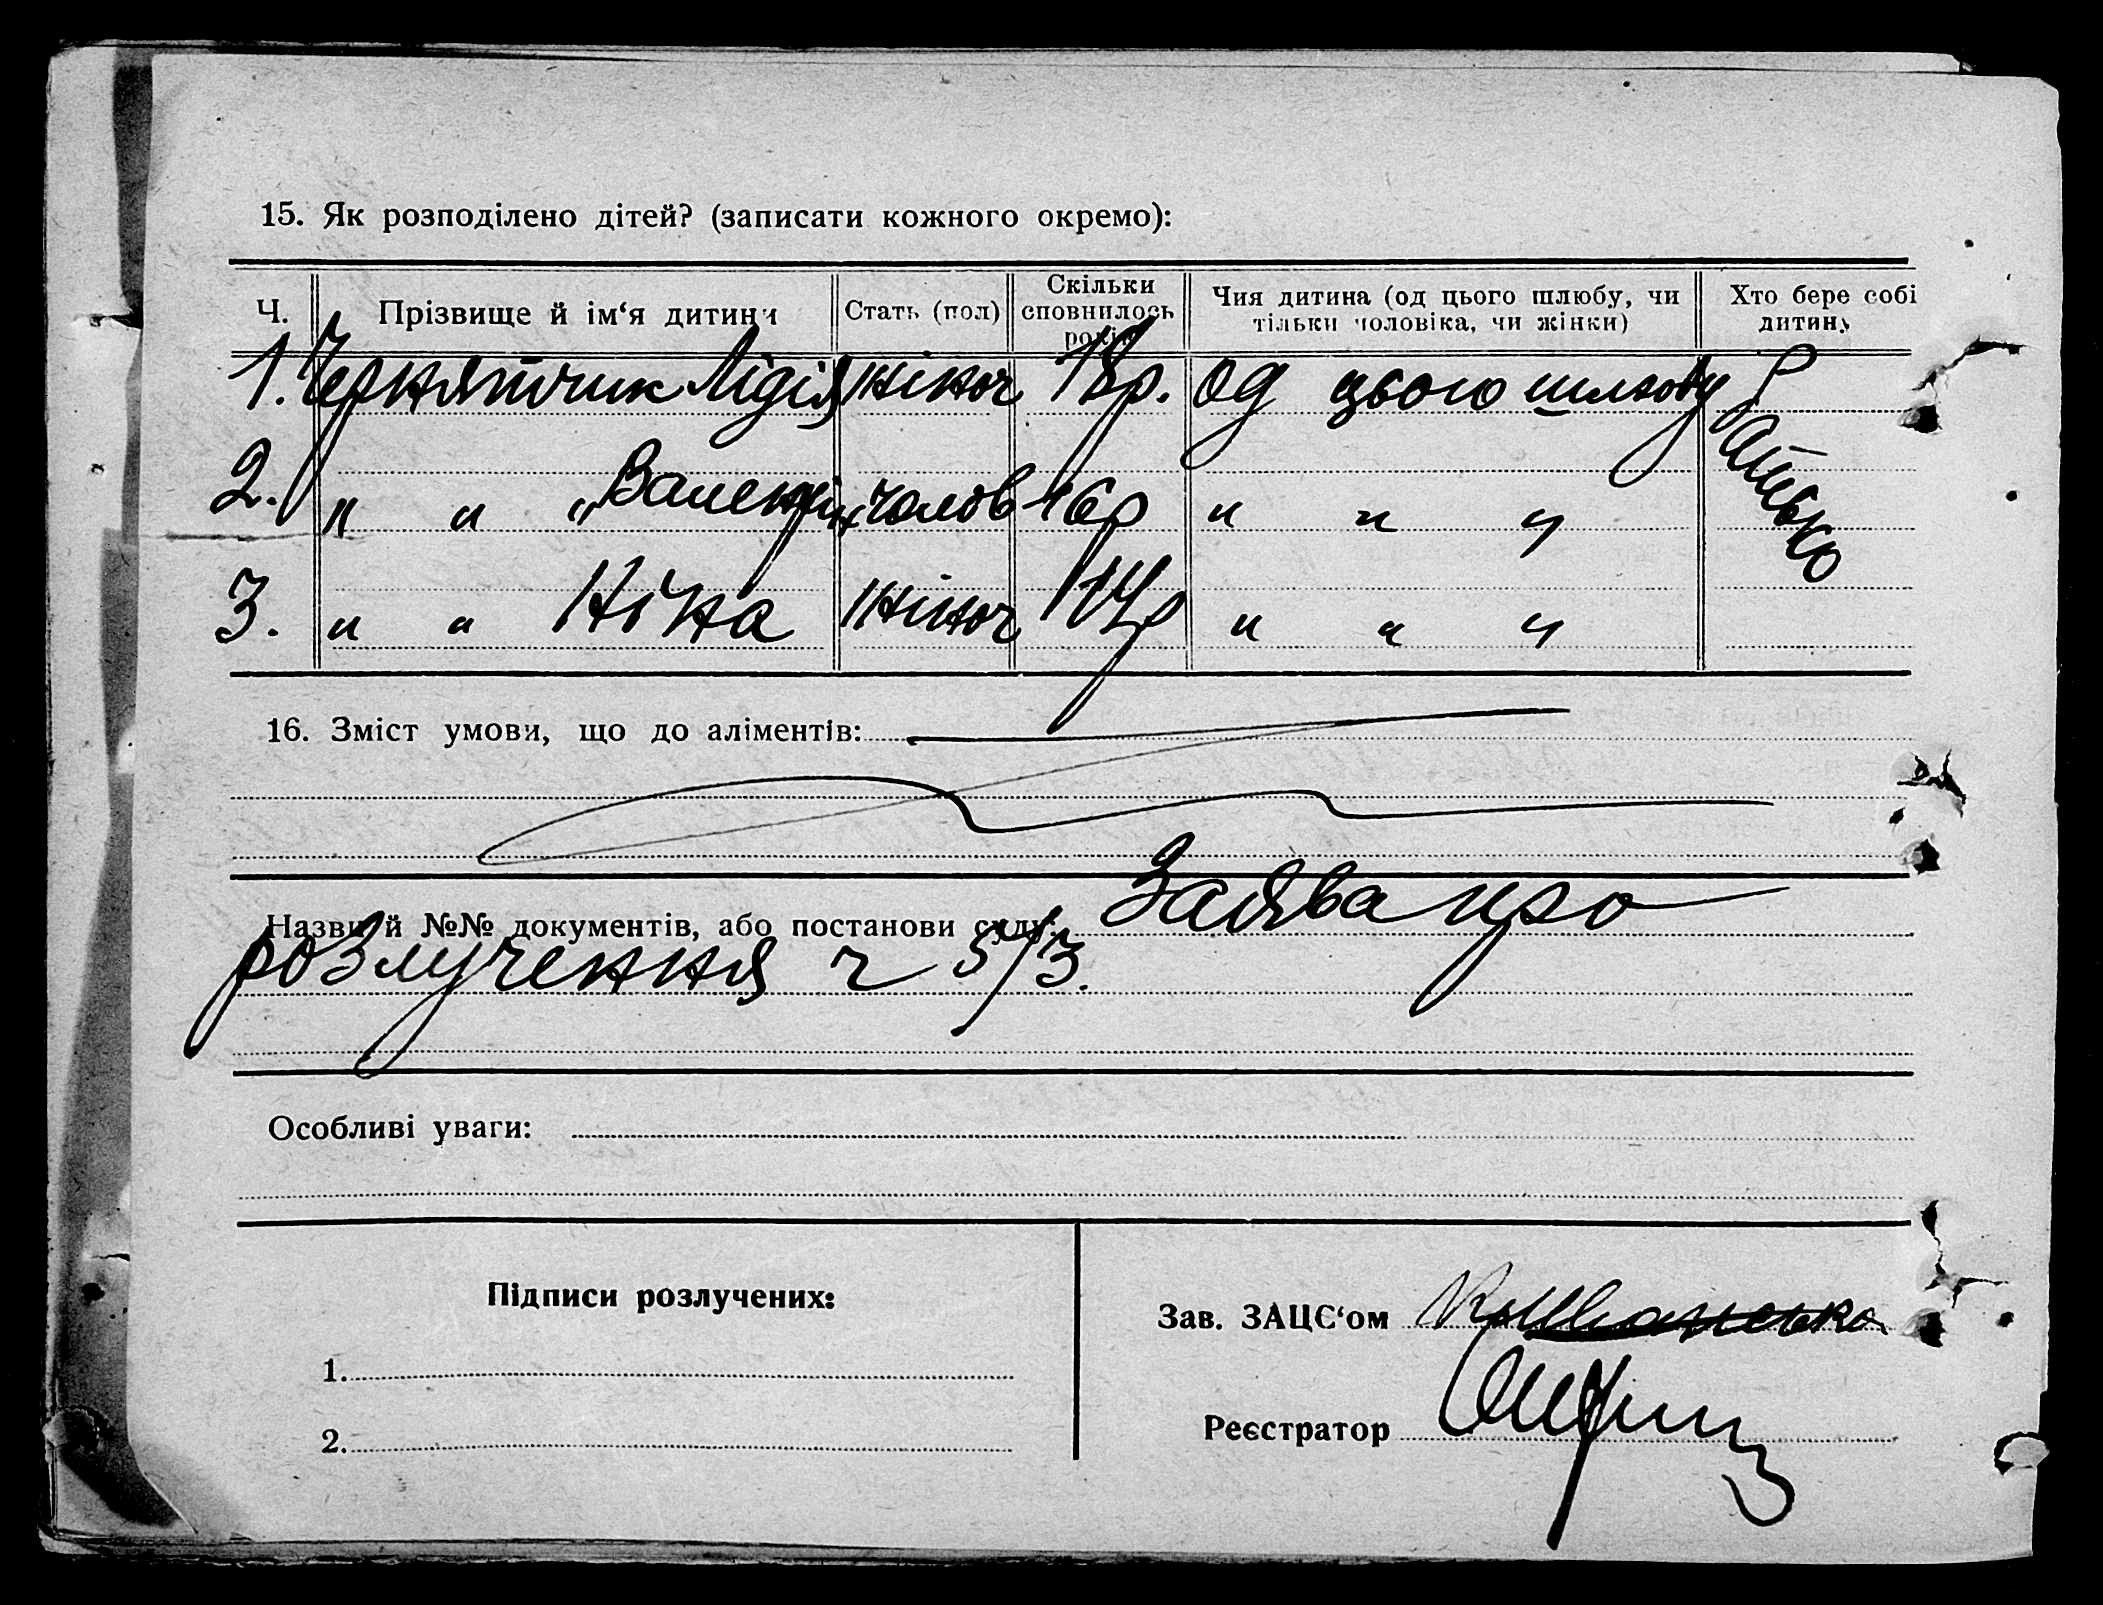 15. Як розподілено дітей? (записати кожного окремо):
Ч. Прізвище й ім‘я дитини Стать (пол) Скільки сповнилось років Чия дитина (од цього шлюбу, чи тільки чоловіка, чи жінки) Хто бере собі дитину
1. Чернятчик Лідія жіноч 18р. од цього шлюбу Батько
2. " " " Валент чолов 16р " " "
3. " " Ніна жіноч 14р " " "
16. Зміст умови, що до аліментів:
Назви й №№ документів, або постанови суду: Заява про
розлучення ч 5/3.
Особливі уваги:
Підписи розлучених:
1.
2.
Зав. ЗАЦС‘ом
Реєстратор